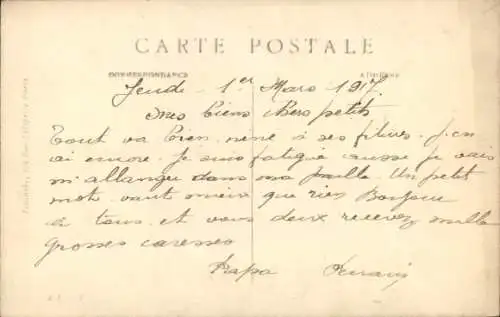 CARTE POSTALE
CORRESPONDANCE
Jeudi 1er Mars 1917.
Mes biens chers petits
Tout va bien même à ses fièvres. J'en
ai encore. Je suis fatigué aussi je vais
m'allonger dans ma paille. Un petit
mot vaut mieux que rien Bonjour
à tous et vous deux recevez mille
grosses caresses
Papa